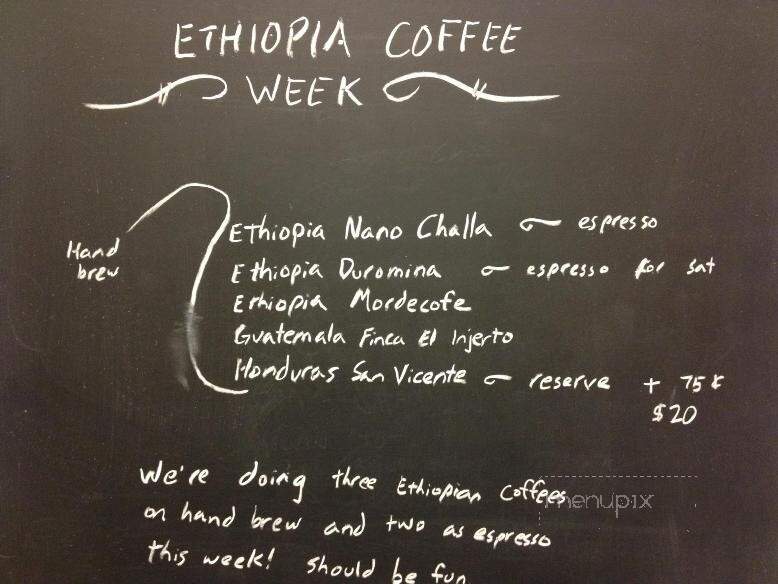 ETHIOPIA COFFEE
WEEK
Hand
brew
Ethiopia Nano Challa ~ espresso
Ethiopia Duromina ~ espresso for sat
Ethiopia Mordecofe
Guatemala Finca El Injerto
Honduras San Vicente ~ reserve + 75¢
$20
We're doing three Ethiopian Coffees
on hand brew and two as espresso
this week! should be fun
menupix